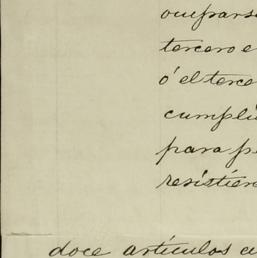 ocuparse
tercero e
ó el terce
cumpli
para p
resistien
doce artículos a